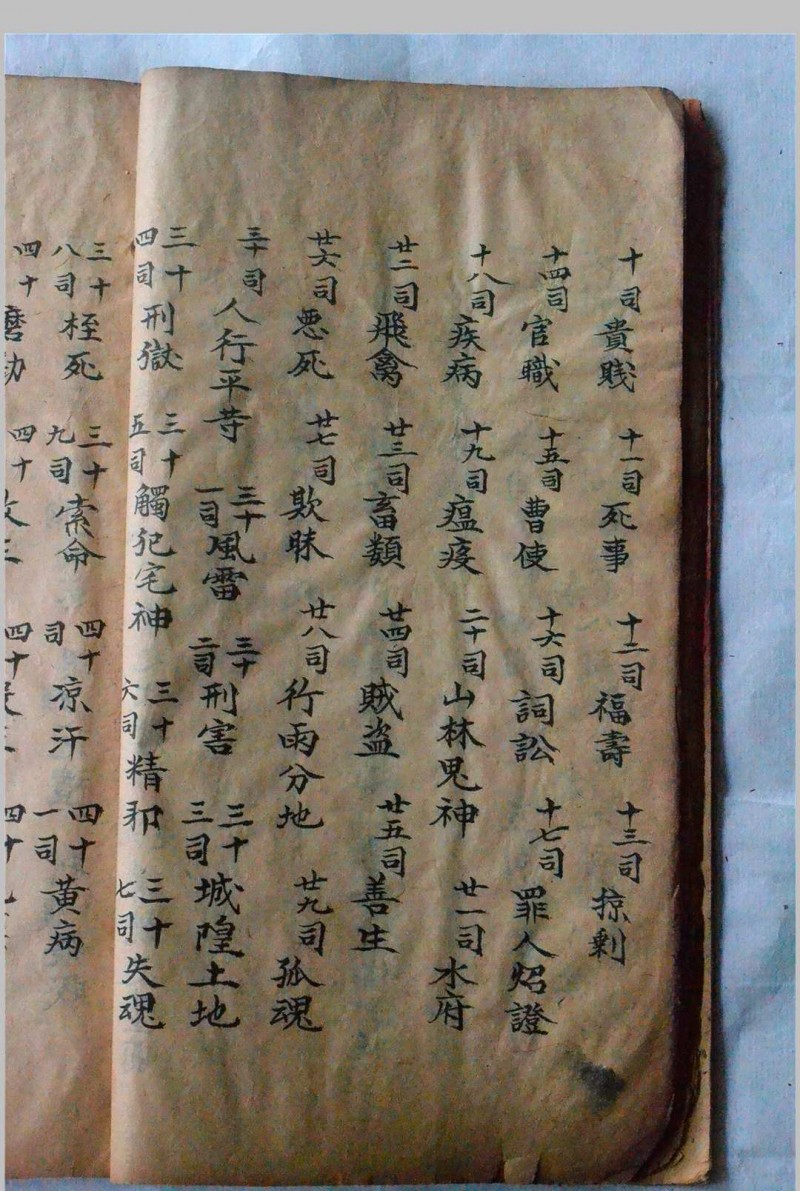 十司貴賤 十一司死事 十二司福壽 十三司掠剩
十四司官職 十五司曹使 十六司詞訟 十七司罪人炤證
十八司疾病 十九司瘟疫 二十司山林鬼神 廿一司水府
廿二司飛禽 廿三司畜類 廿四司賊盗 廿五司善生
廿六司悪死 廿七司欺昧 廿八司行雨分地 廿九司孤魂
三十司人行平等 三十一司風雷 三十二司刑害 三十三司城隍土地
三十四司刑獄 三十五司觸犯宅神 三十六司精邪 三十七司失魂
三十八司枉死 三十九司索命 四十司凉汗 四十一司黃病
四十 四十 四十 四十